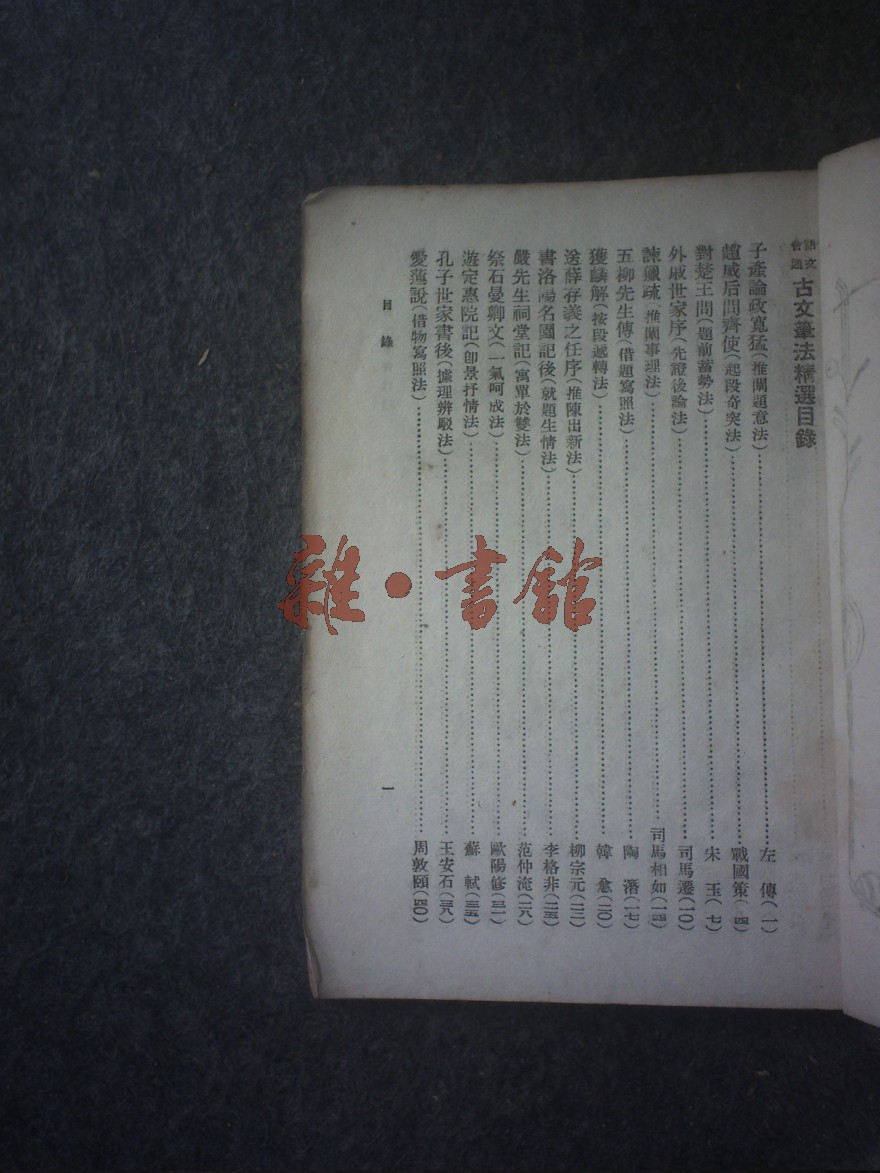 語文會通
古文筆法精選目錄
子產論政寬猛(推闡題意法)……左傳(一)
趙威后問齊使(起段奇突法)……戰國策(四)
對楚王問(題前蓄勢法)……宋玉(七)
外戚世家序(先證後論法)……司馬遷(一〇)
諫獵疏(推闡事理法)……司馬相如(一四)
五柳先生傳(借題寫照法)……陶潛(一七)
獲麟解(按段遞轉法)……韓愈(二〇)
送薛存義之任序(推陳出新法)……柳宗元(二三)
書洛陽名園記後(就題生情法)……李格非(二五)
嚴先生祠堂記(寓單於雙法)……范仲淹(二八)
祭石曼卿文(一氣呵成法)……歐陽修(三二)
遊定惠院記(即景抒情法)……蘇軾(三五)
孔子世家書後(據理辨駁法)……王安石(三八)
愛蓮說(借物寫照法)……周敦頤(四〇)
目錄
一
雜·書館